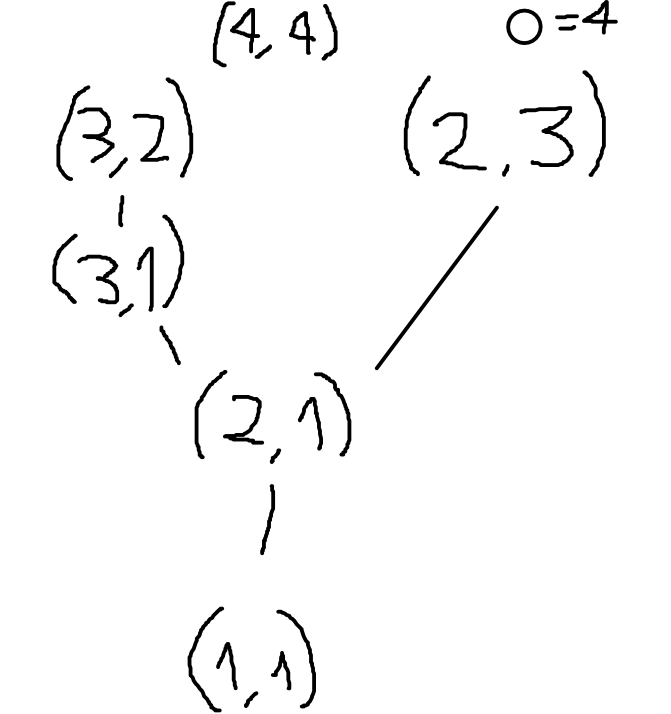 (4,4) O=4
(3,2) (2,3)
(3,1)
(2,1)
(1,1)